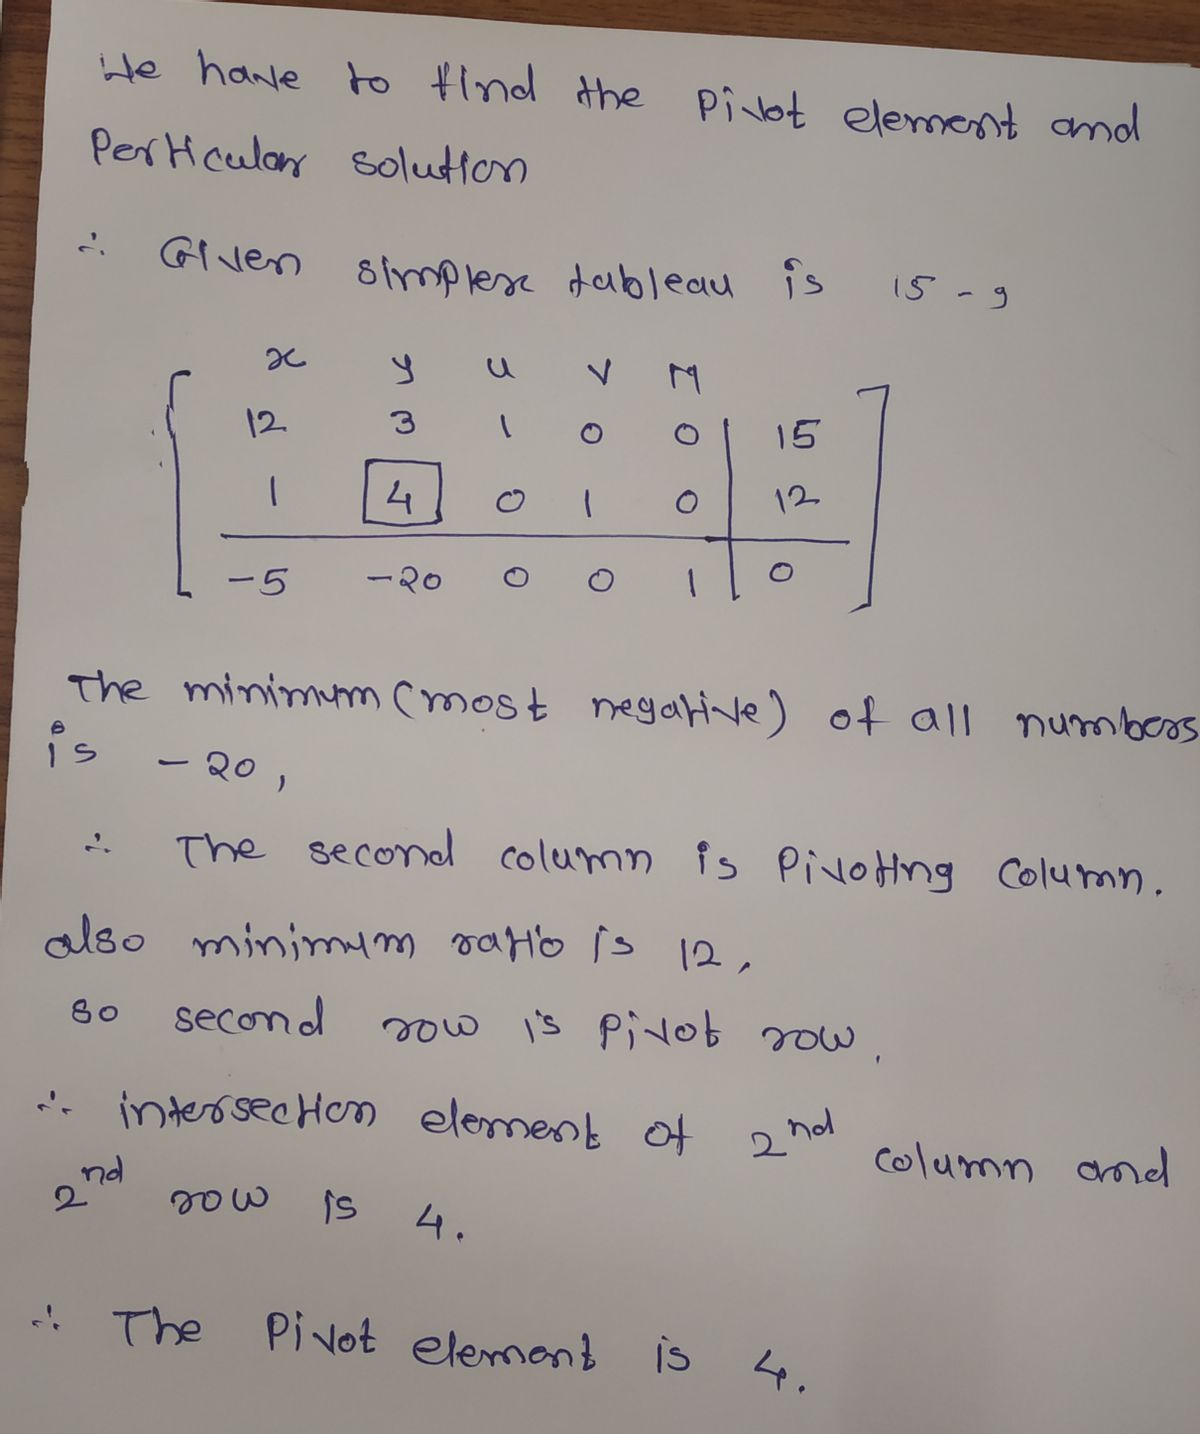 We have to find the pivot element and
Perticular solution
∴ Given simplex tableau is 15-9
x y u v M
12 3 1 0 0 15
1 4 0 1 0 12
-5 -20 0 0 1 0
The minimum (most negative) of all numbers
is -20,
∴ The second column is Pivoting Column.
also minimum ratio is 12,
so second row is pivot row.
∴ intersection element of 2nd column and
2nd row is 4.
∴ The Pivot element is 4.